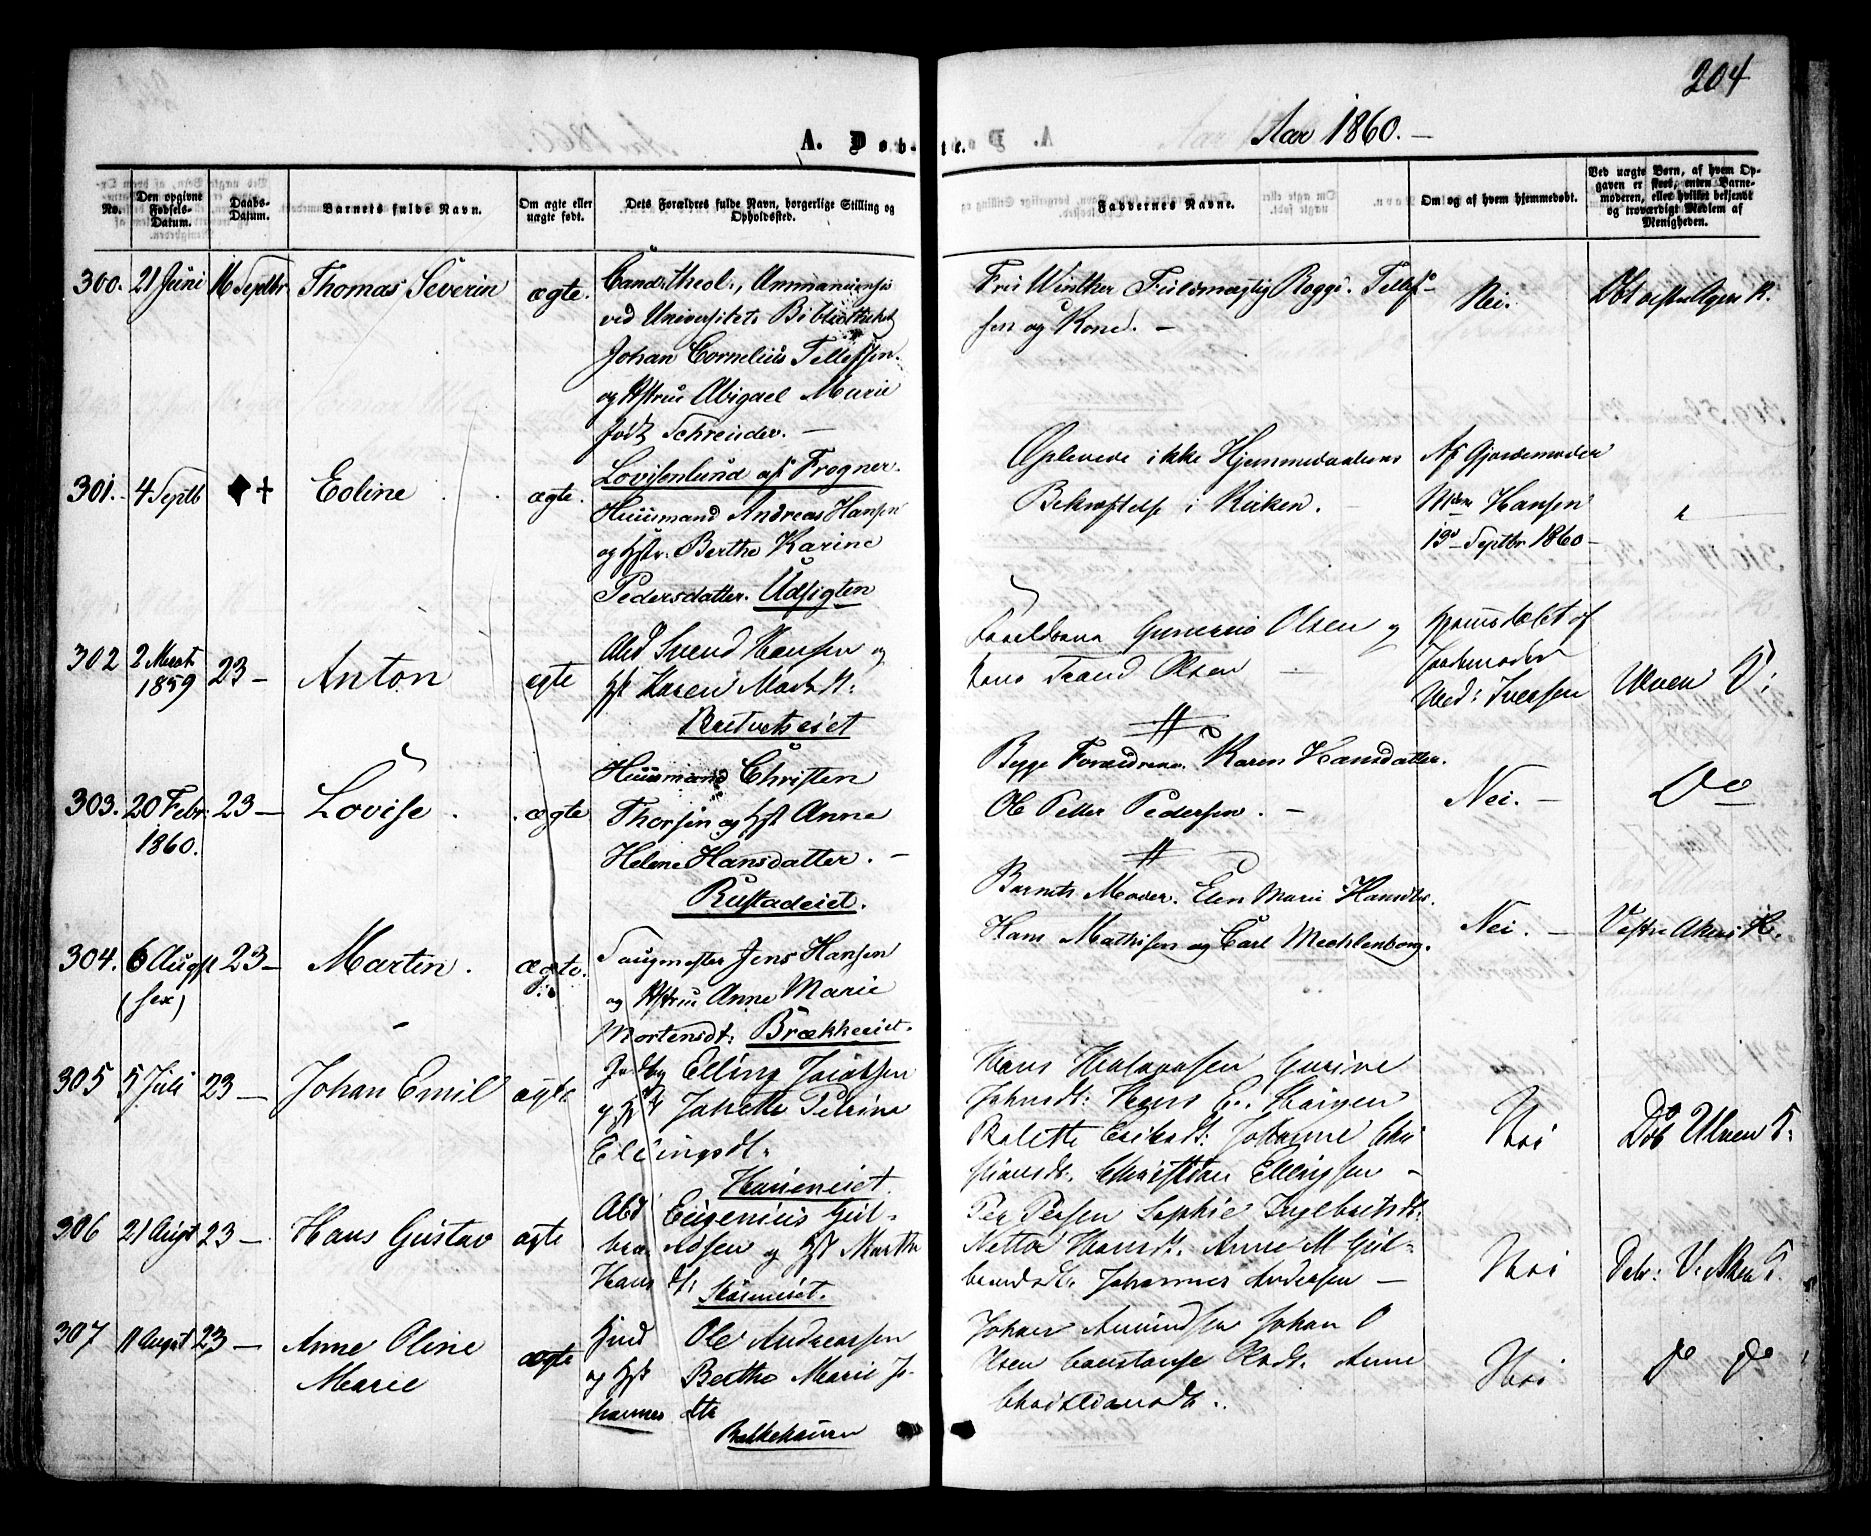 204
Aar 1860.
A. Døbte.
No.
Den opgivne Fødsels-Datum.
Daabs-Datum.
Barnets fulde Navn.
Om ægte eller uægte født.
Dets Forældres fulde Navn, borgerlige Stilling og Opholdssted.
Faddernes Navne.
Om og af hvem hjemmedøbt.
Ved uægte Børn, af hvem Opgaven er skeet, enten Barnemoderen, eller hvilket bekjendt og troværdigt Medlem af Menigheden.
300. 21 Juni 16 Septbr Thomas Severin ægte.
Cand. Theol., Ammanuensis
ved Universitets Bibliotheket
Johan Cornelius Tellefsen
og Hstru Abigael Marie
født Schreuder. —
Lovisenlund af Frogner.
Winther Fuldmægtig Tellef-
sen og Kone. —
Nei.
301. 4 Septb + Eoline ægte.
Huusmand Andreas Hansen
og Hstr. Berthe Karine
Pedersdatter. Udsigten
Oplevede ikke Hjemmedaabens
Bekræftelse i Kirken. —
Af Gjordemoder
Hansen
13 Septbr 1860 —
302 2 Marts 1859 23 — Anton egte
Abd Svend Hansen og
Hst Karen
Olsen og
Olsen —
Hjemdøbt af
Jordemoder
Iversen
Ulven
303. 20 Febr. 1860. 23 — Lovise ægte
Huusmand Christen
Thorsen og Hst Anne
Helene Hansdatter. —
Rustadeiet.
Begge Forældrene. Karen Hansdatter.
Ole Petter Pedersen. —
Nei. —
Do
304. 6 Augst 23 — Martin. ægte.
(sex)
Saugmester Jens Hansen
og Hstru Anne Marie
Mortensdt: Brækkeeiet.
Barnets Moder. Elen Marie Hansdtr.
Hans Mathisen og Carl Mechlenborg.
Nei. —
Vestre Akers K.
305 5 Juli 23 — Johan Emil ægte
Elling Jacobsen
og Hst Petrine
Ellingsdt.
Hans Gurine
Johnsdt: Hans E.
Eriksdt: Johanne Chri
stiansdt. Christian Ellingsen —
Nei
Døb Ulven
306 21 Augst 23 — Hans Gustav ægte
Abd Eugenius Gul-
brandsen og Hst Marthe
Hansdt:
Per Persen Sophie Ingebretsdt:
Hansdt. Anne M Gul-
brandsdt. Johannes Andersen —
Nei
307 11 Augst 23 — Anne Oline
Marie
ægte
Ole Andreassen
og Hst Berthe Marie Jo-
hannesdtr
Bakkehaugen
Johan Amundsen Johan O
lsen Constanse Olsdt. Anne
Christiansdt.
Nei
Do Do